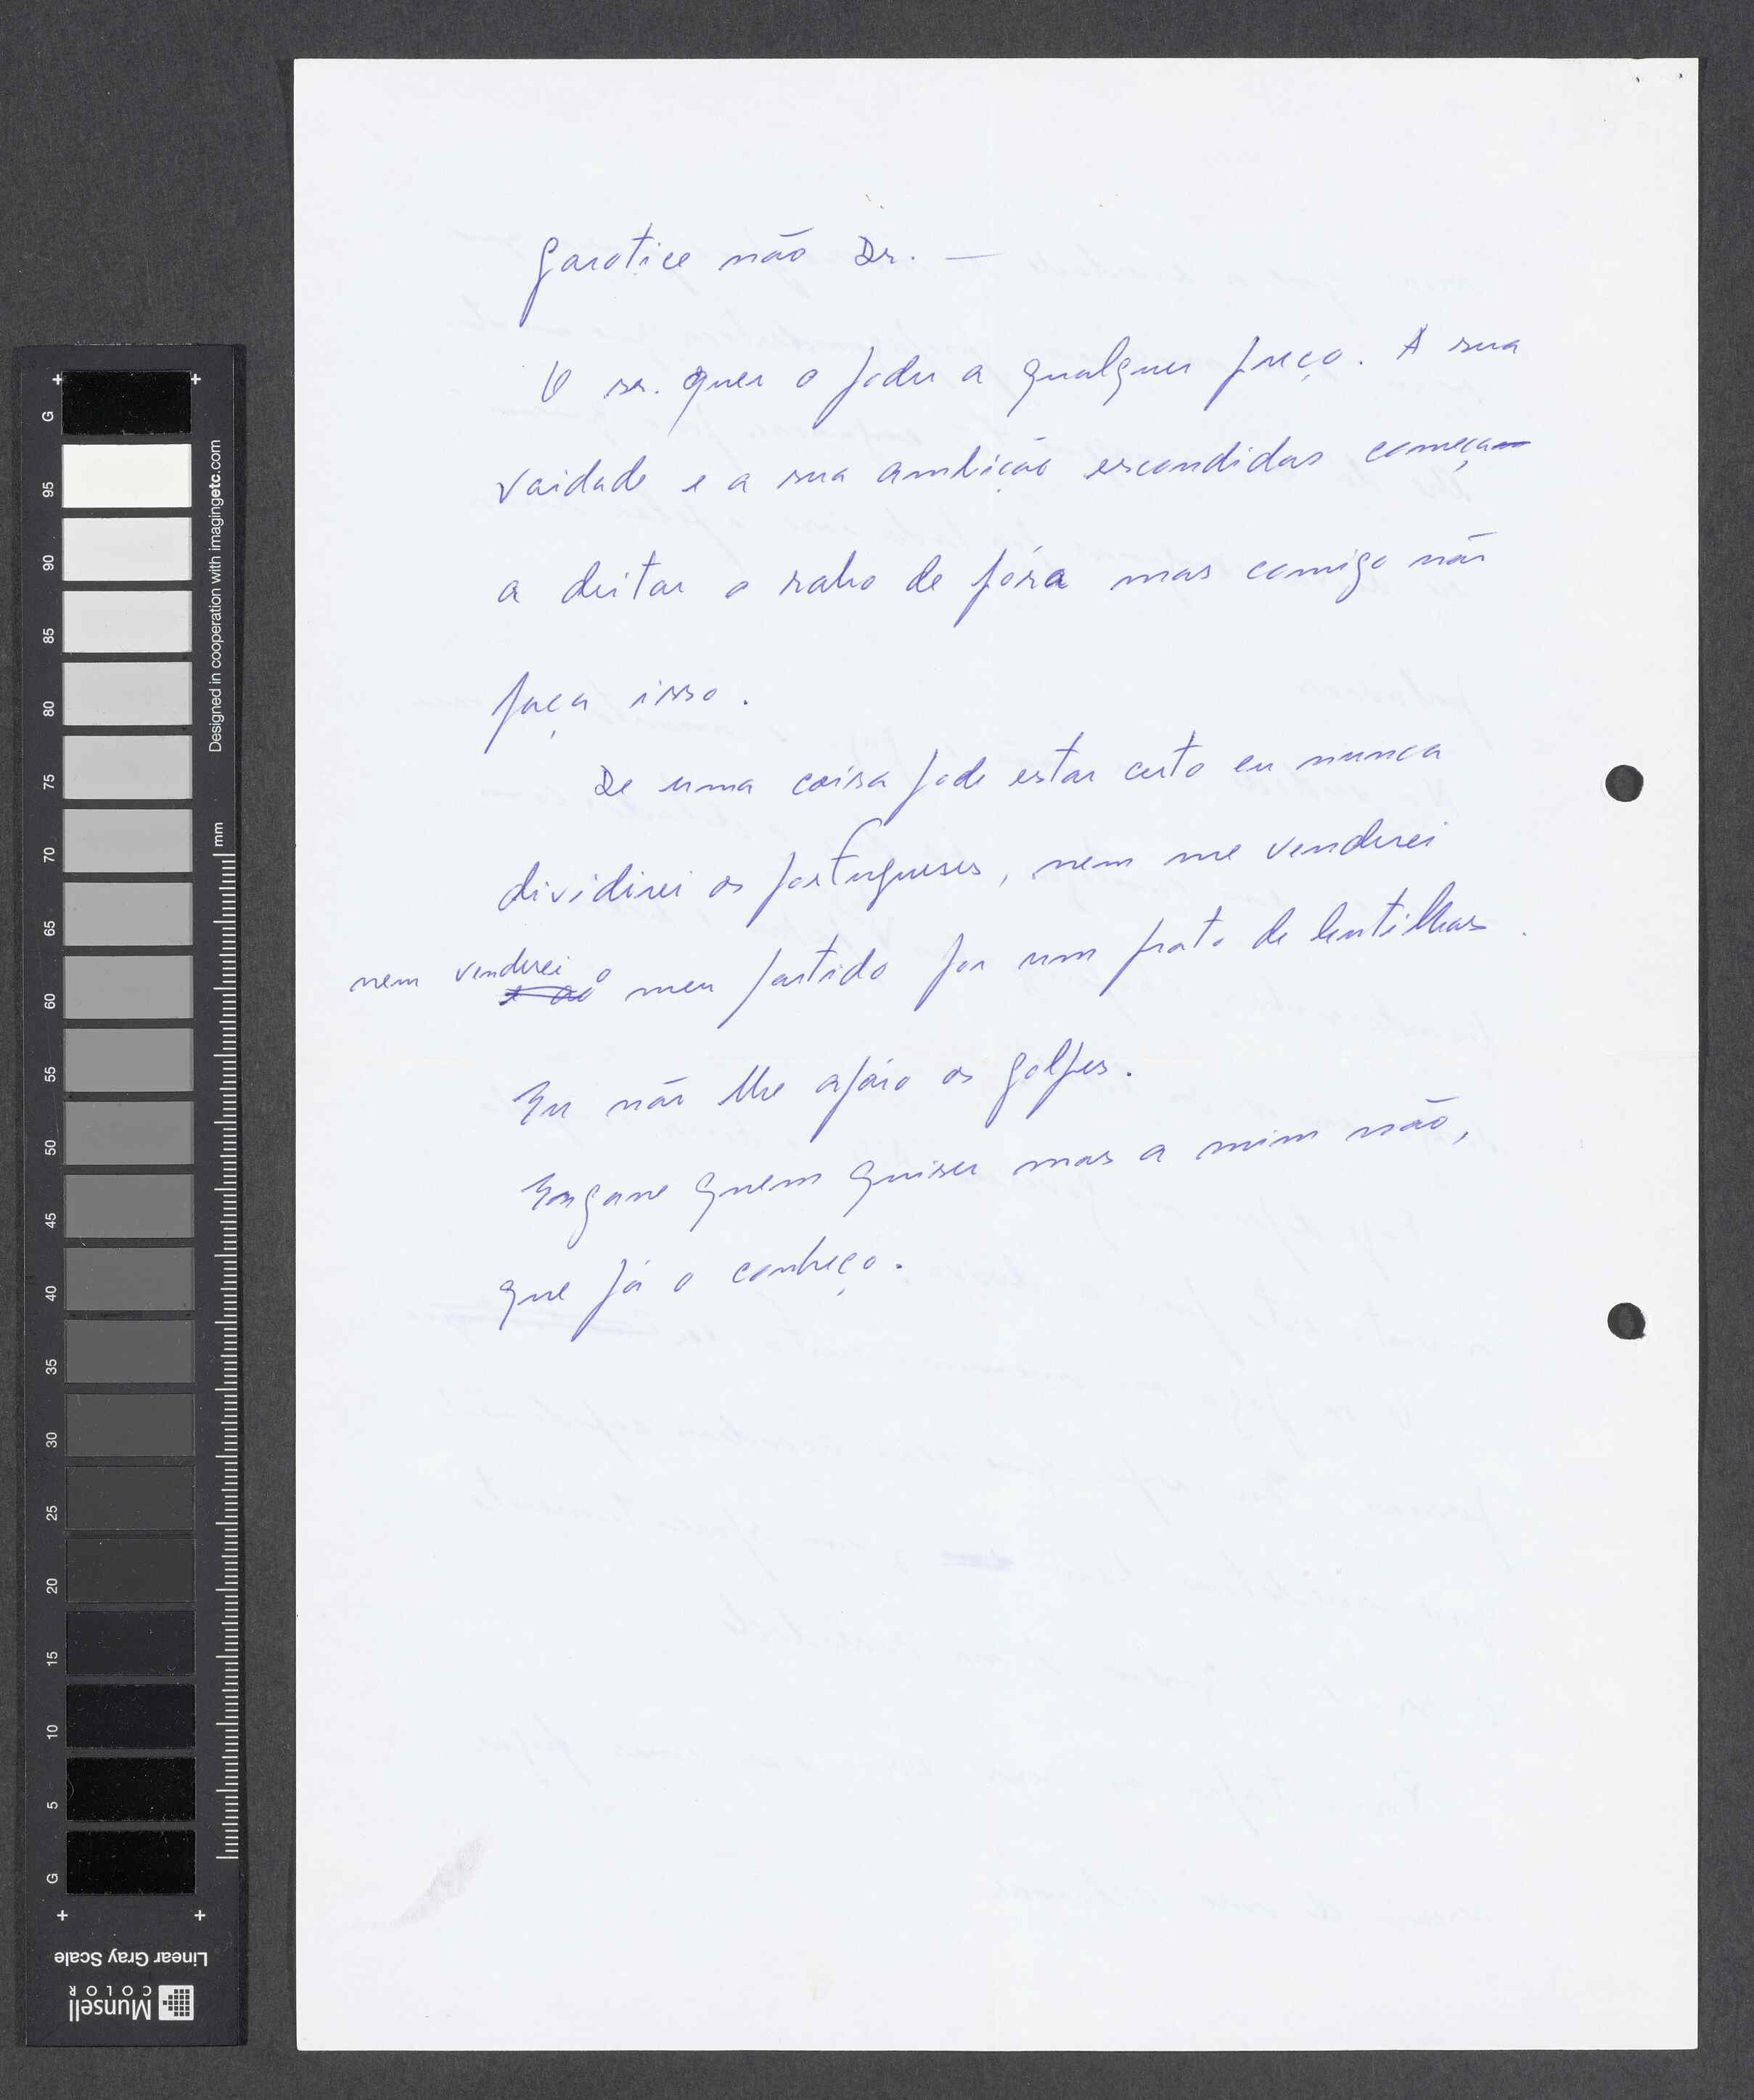 Garotice não Dr. —
O sr. quer o poder a qualquer preço. A sua
vaidade e a sua ambição escondidas começam
a deitar o rabo de fóra mas comigo não
faça isso.
De uma coisa pode estar certo eu nunca
dividirei os portugueses, nem me venderei
nem venderei o meu partido por um prato de lentilhas.
Eu não lhe apáro os golpes.
Engane quem quiser mas a mim não,
que já o conheço.
+ +
G
95
90
85
80
75
70
65
60
55
50
45
40
35
30
25
20
15
10
5
G
+ +
Designed in cooperation with imagingetc.com
mm
Linear Gray Scale
Munsell
COLOR